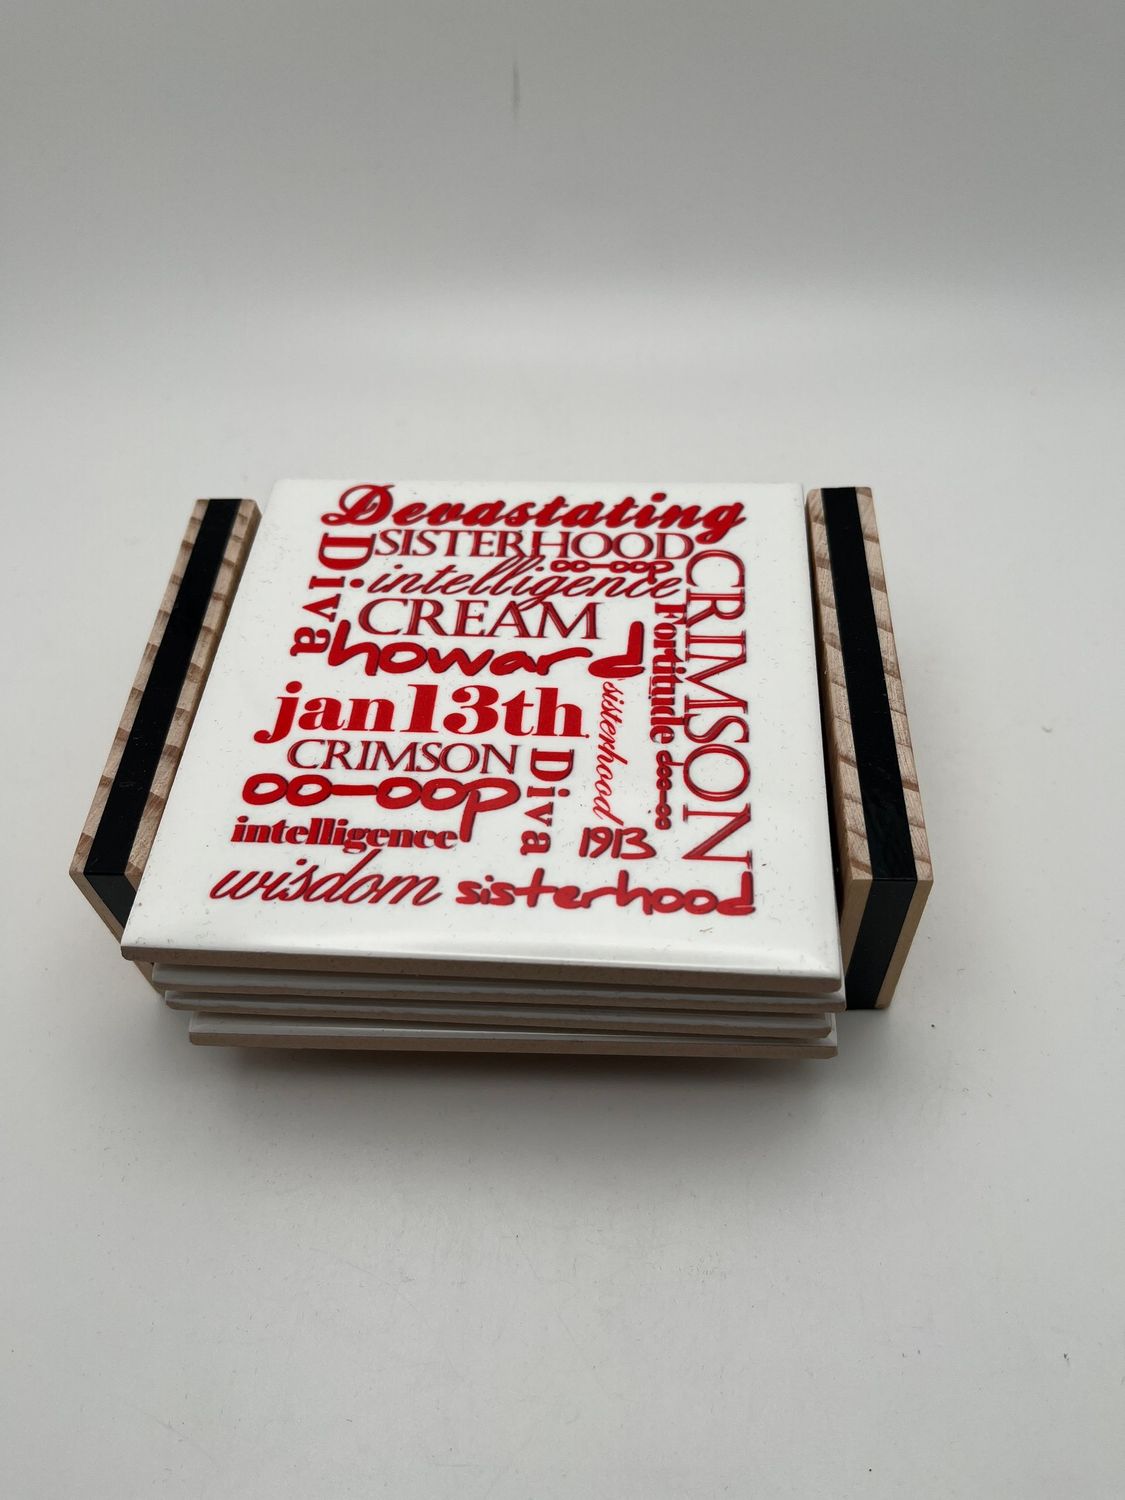 Devastating
SISTERHOOD
oo-oop
Diva
intelligence
CREAM
CRIMSON
Fortitude
howard
jan13th
sisterhood
CRIMSON
oo-oop
Diva
intelligence
1913
wisdom sisterhood